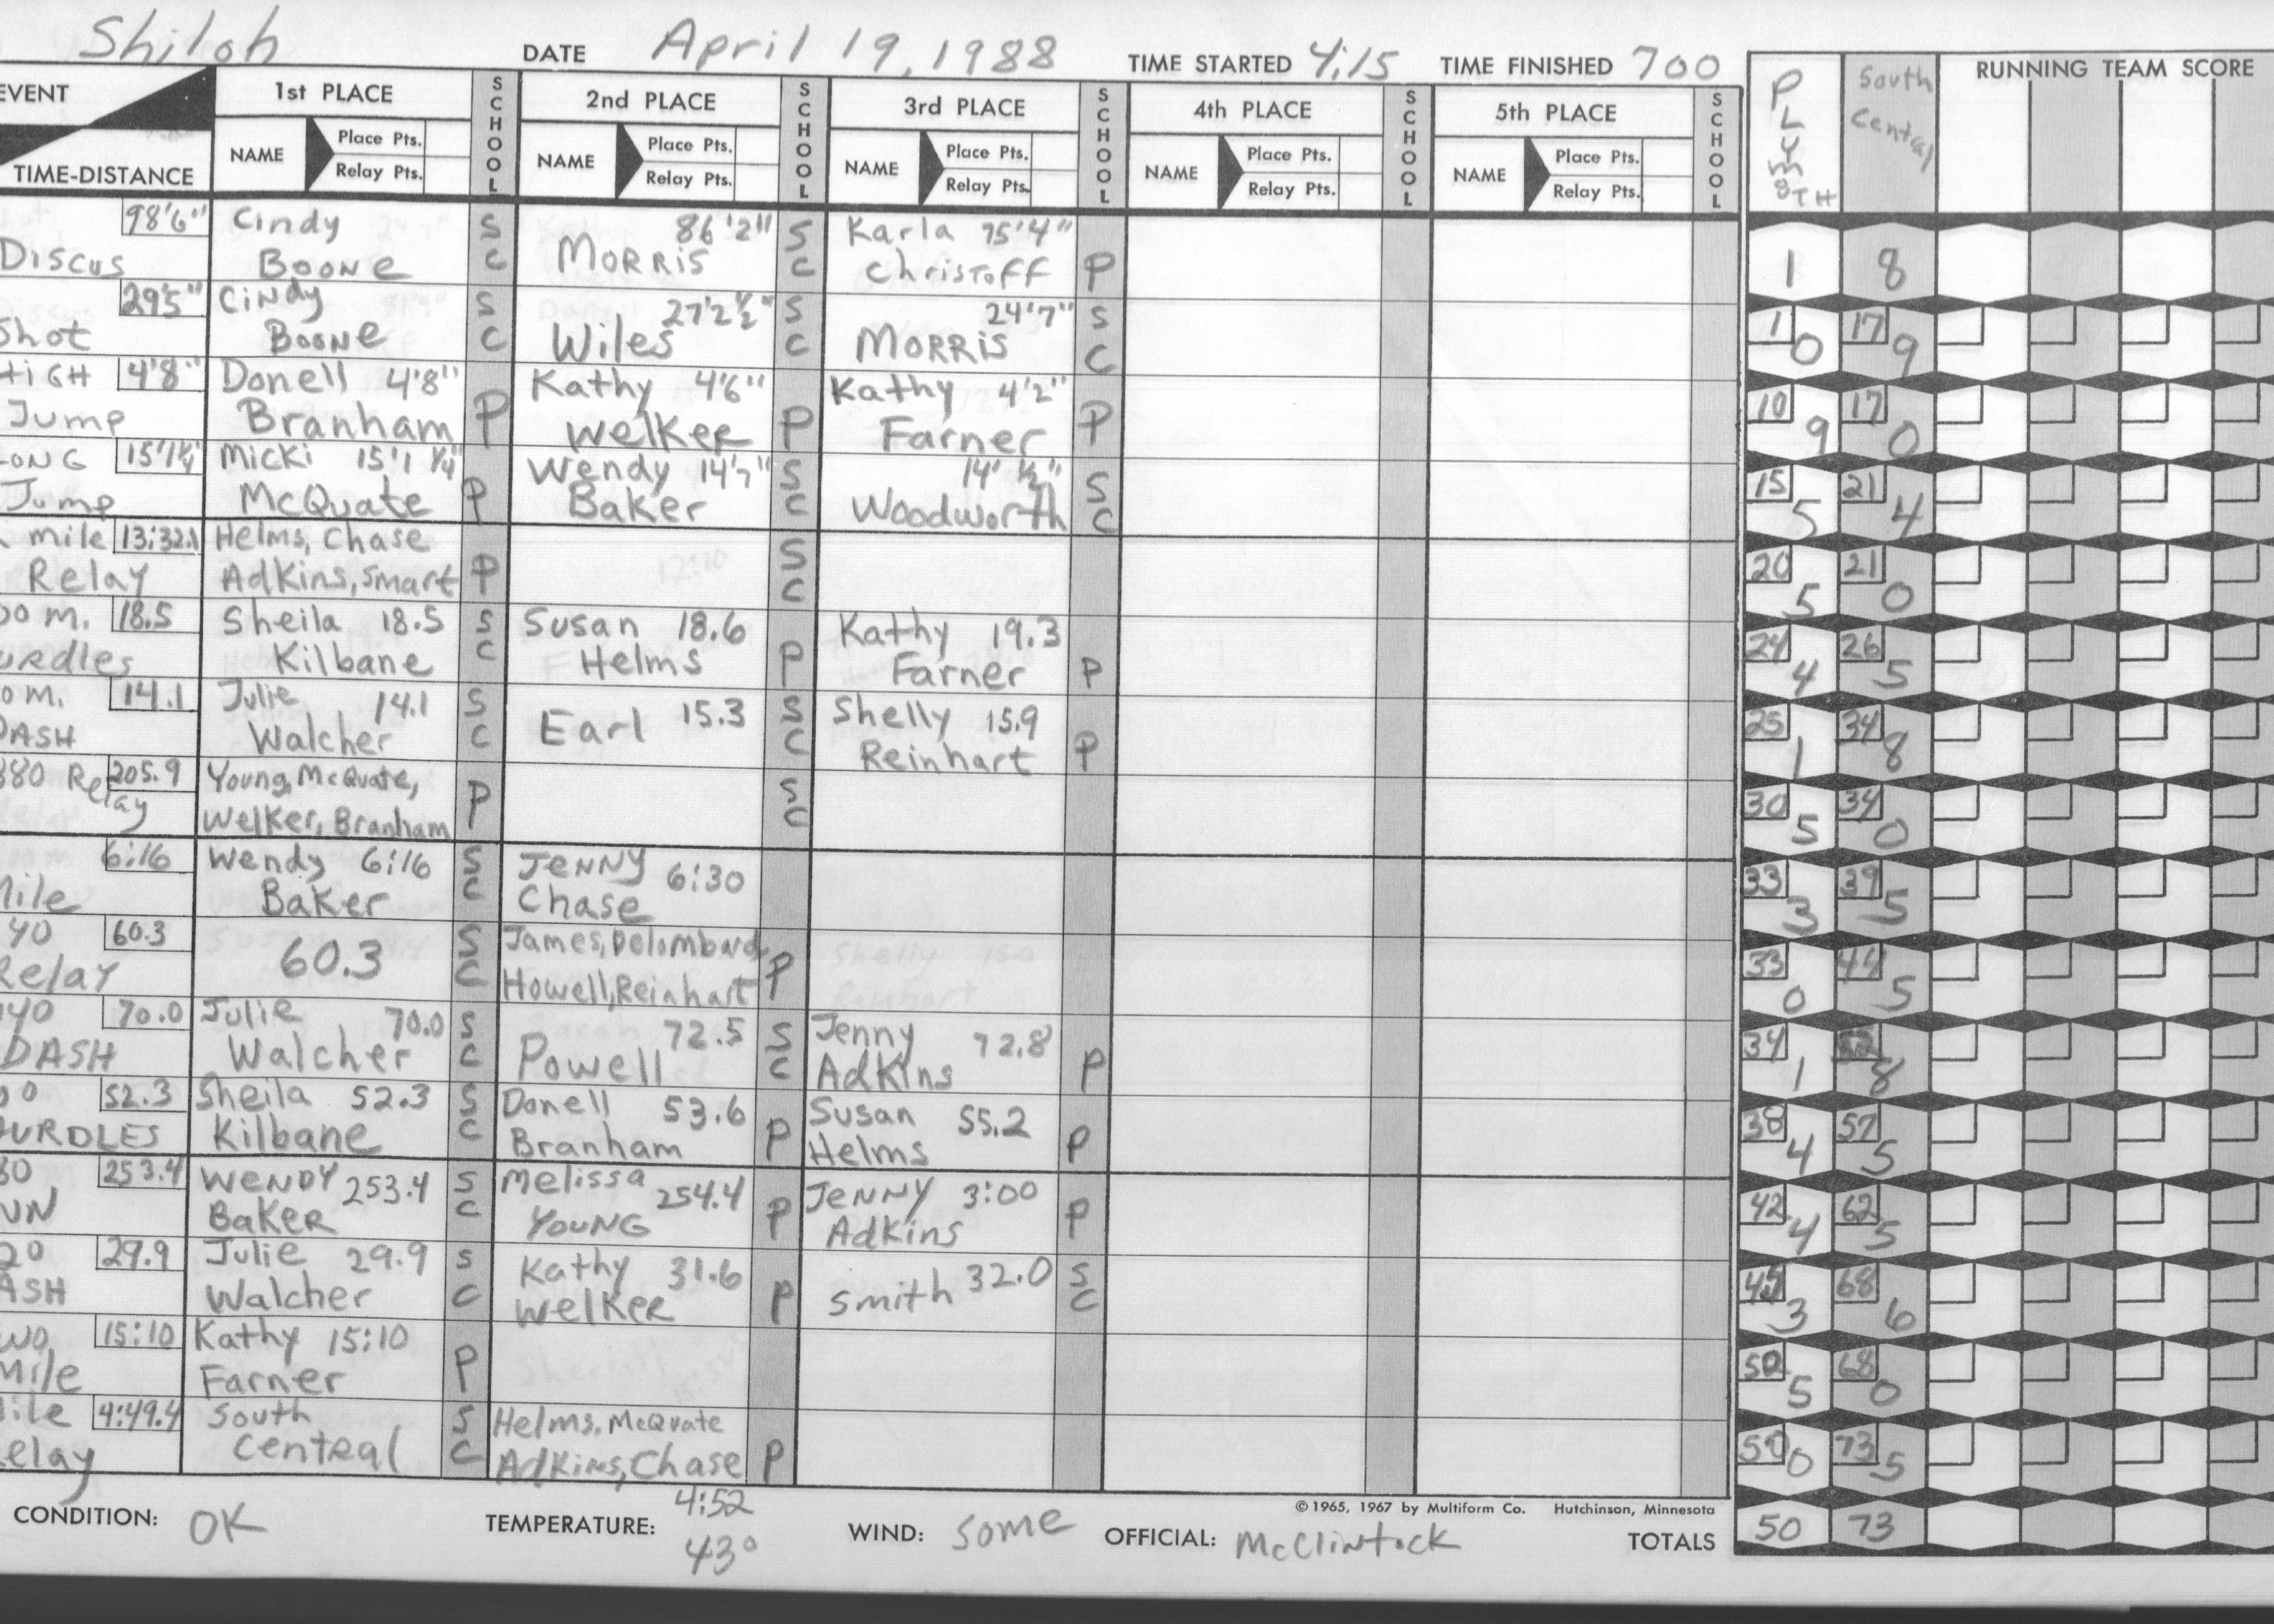 Shiloh DATE April 19, 1988 TIME STARTED 4:15 TIME FINISHED 700
PLYMOUTH South Central RUNNING TEAM SCORE
EVENT 1st PLACE SCHOOL 2nd PLACE SCHOOL 3rd PLACE SCHOOL 4th PLACE SCHOOL 5th PLACE SCHOOL
TIME-DISTANCE NAME Place Pts. NAME Place Pts. NAME Place Pts. NAME Place Pts. NAME Place Pts.
Relay Pts. Relay Pts. Relay Pts. Relay Pts. Relay Pts.
98'6" Cindy SC 86'2" SC Karla 75'4"
Discus Boone Morris Christoff P 1 8
29'5" Cindy SC 27'2½" SC 24'7" SC 1 17
Shot Boone Wiles Morris 0 9
HiGH 4'8" Donell 4'8" Kathy 4'6" Kathy 4'2" 10 17
Jump Branham P Welker P Farner P 9 0
ONG 15'1¼ Micki 15'1 ¼" Wendy 14'7" SC 14' ½" SC 15 21
Jump McQuate P Baker Woodworth 5 4
mile 13:32.1 Helms, Chase SC 20 21
Relay Adkins, Smart P 5 0
00 m. 18.5 Sheila 18.5 SC Susan 18.6 Kathy 19.3 24 26
urdles Kilbane Helms P Farner P 4 5
0 m. 14.1 Julie 14.1 SC Earl 15.3 SC Shelly 15.9 25 34
DASH Walcher Reinhart P 1 8
880 Relay 205.9 Young, McQuate, SC 30 34
Welker, Branham P 5 0
6:16 Wendy 6:16 SC Jenny 6:30 33 39
Mile Baker Chase 3 5
40 60.3 60.3 SC James, Delombard 33 44
Relay Howell, Reinhart P 0 5
440 70.0 Julie 70.0 SC 72.5 SC Jenny 72.8 34 52
DASH Walcher Powell Adkins P 1 8
00 52.3 Sheila 52.3 SC Donell 53.6 Susan 55.2 38 57
HURDLES Kilbane Branham P Helms P 4 5
80 253.4 Wendy 253.4 SC Melissa 254.4 Jenny 3:00 42 62
UN Baker Young P Adkins P 4 5
20 29.9 Julie 29.9 SC Kathy 31.6 Smith 32.0 SC 45 68
ASH Walcher Welker P 3 6
wo 15:10 Kathy 15:10 50 68
Mile Farner P 5 0
Mile 4:49.4 South SC Helms, McQuate 50 73
elay Central Adkins, Chase P 0 5
4:52
© 1965, 1967 by Multiform Co. Hutchinson, Minnesota
CONDITION: OK TEMPERATURE: 43° WIND: Some OFFICIAL: McClintock TOTALS 50 73